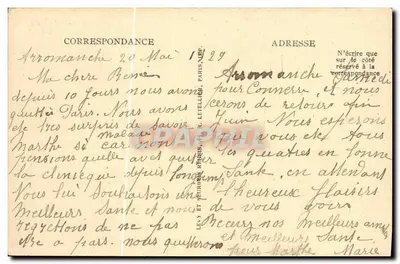 CORRESPONDANCE
ADRESSE
N'écrire que
sur le côté
réservé à la
correspondance
Arromanche 20 Mai 1929
Ma chere
depuis 10 jours nous avons
quitté Paris. Nous avons
ete tres surpris de savoir
malade
Marthe si car nous
pensions quelle avez quitter
la clinieque depuis longtems
Nous lui Souhaitons une
Meilleurs Sante et nous
regrettons de ne pas
a pars. nous quitterons
Arromanche Samedi
pour Connerre et nous
serons de retour fin
Juin Nous esperons
que vous ete tous
les quatres en bonne
Sante en attendant
l'heureux plaisirs
de vous voir
Recevez nos meilleurs
et meilleurs Sante
pour Marthe Marie
CPRAPHILIE